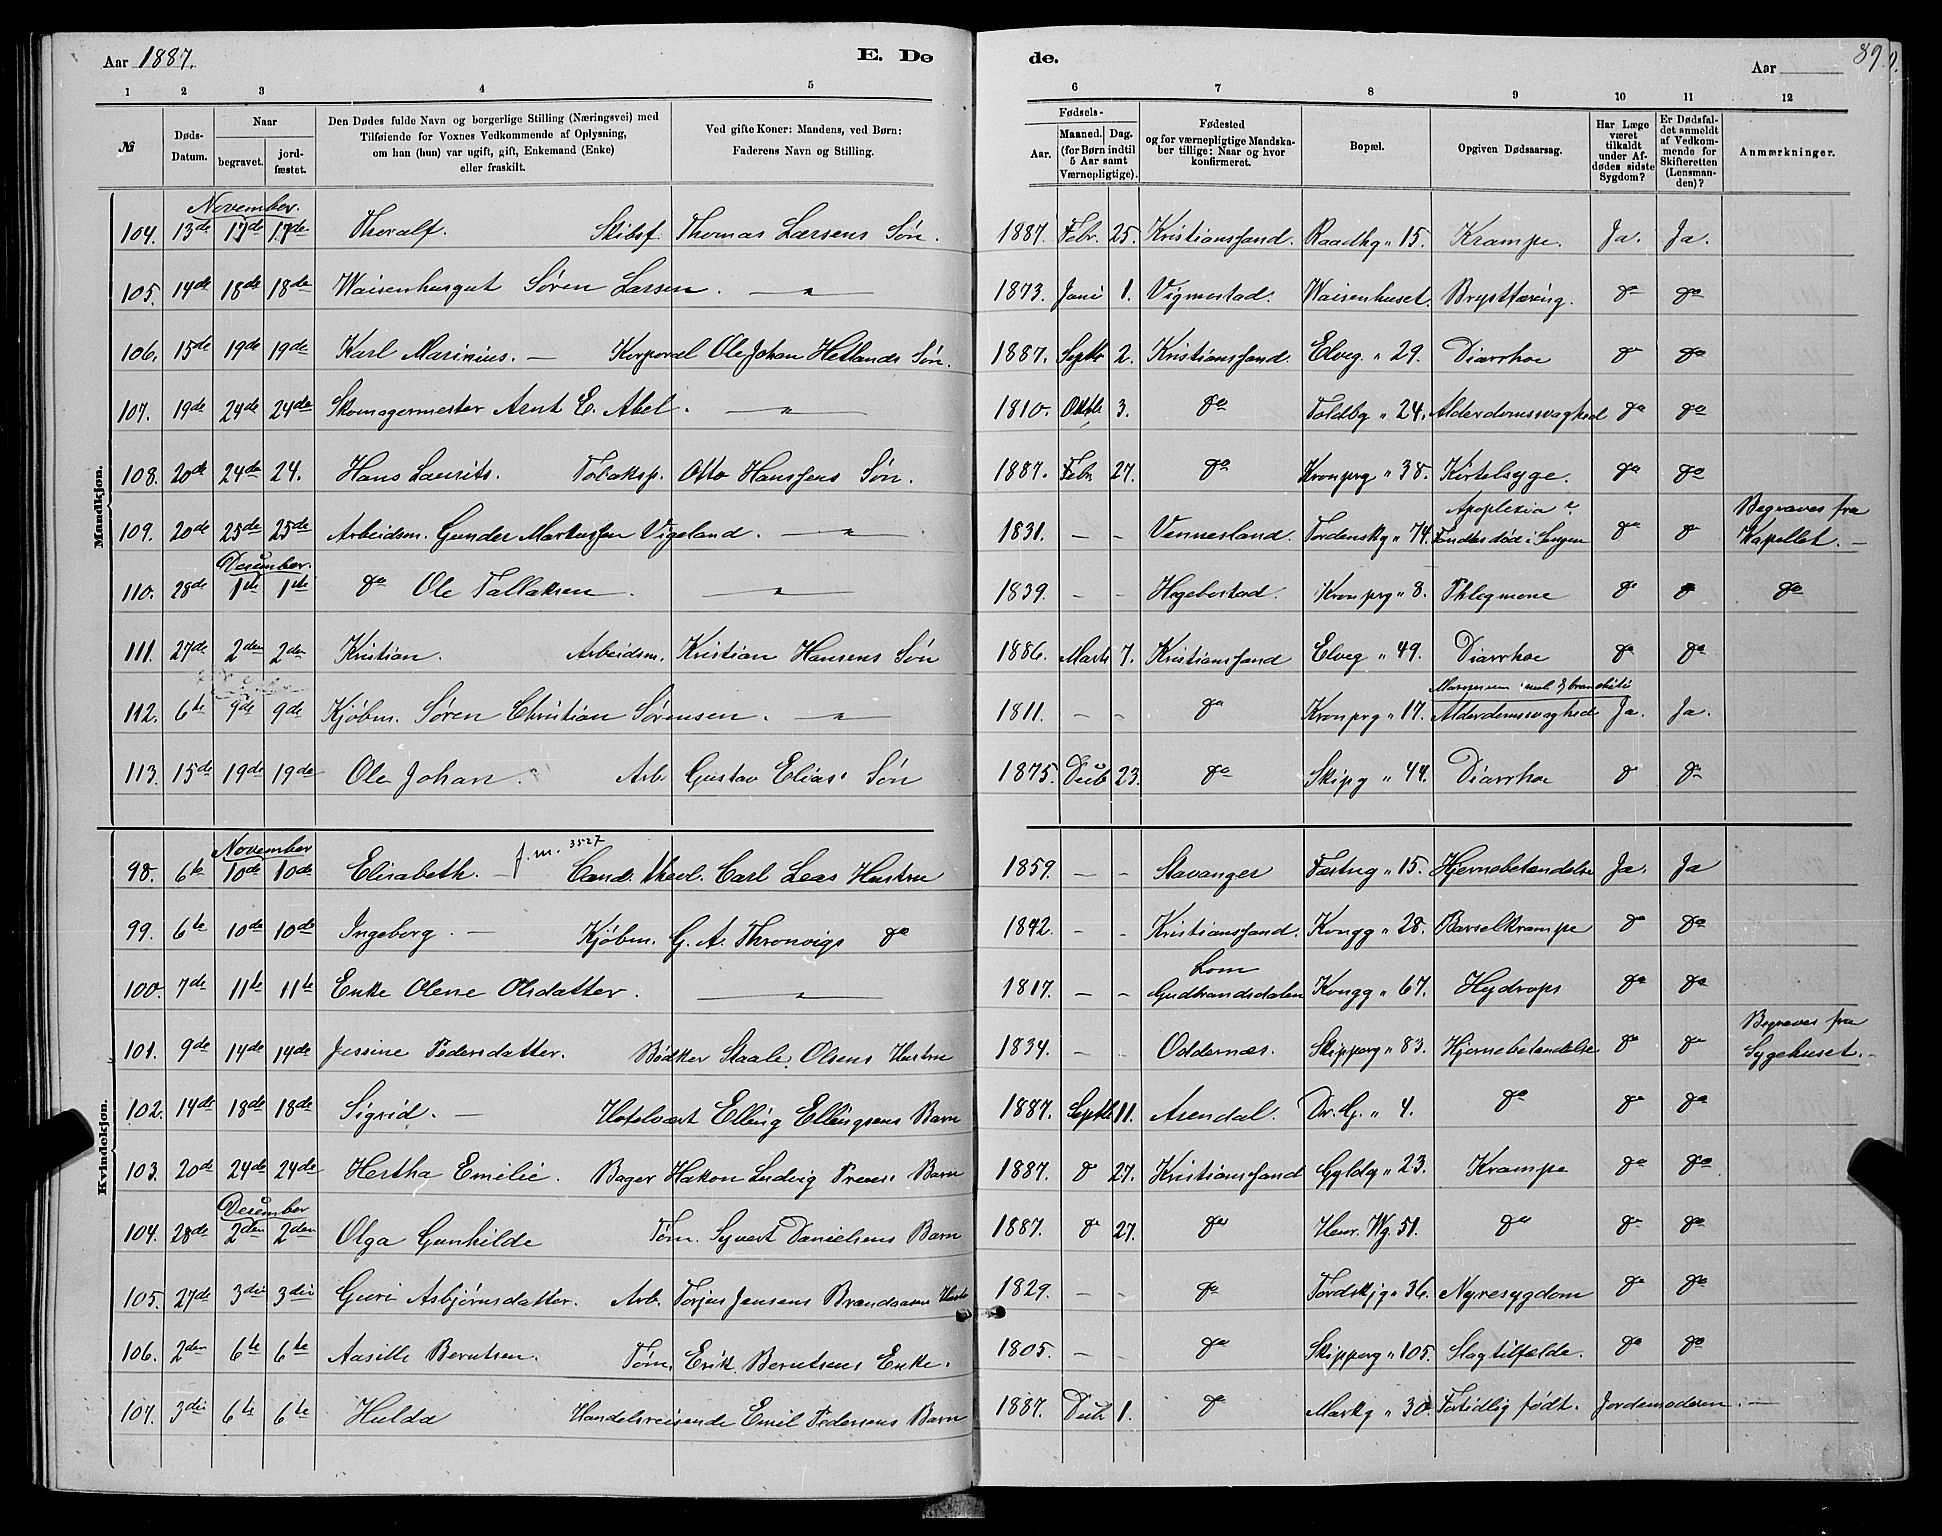 Aar 1887. E. Dø de. Aar 89.
1 2 3 4 5 6 7 8 9 10 11 12
№ Døds-Datum. Naar begravet. jord-fæstet. Den Dødes fulde Navn og borgerlige Stilling (Næringsvei) med Tilføiende for Voxnes Vedkommende af Oplysning, om han (hun) var ugift, gift, Enkemand (Enke) eller fraskilt. Ved gifte Koner: Mandens, ved Børn: Faderens Navn og Stilling. Fødsels- Aar. Maaned. Dag. (for Børn indtil 5 Aar samt Værnepligtige). Fødested og for værnepligtige Mandskaber tillige: Naar og hvor konfirmeret. Bopæl. Opgiven Dødsaarsag. Har Læge været tilkaldt under Afdødes sidste Sygdom? Er Dødsfaldet anmeldt af Vedkommende for Skifteretten (Lensmanden)? Anmærkninger.
Mandkjøn.
November.
104. 13de 17de 17de Thoralf. Skibsf. Thomas Larsens Søn. 1887. Febr. 25. Kristianssand. Raadhg " 15. Krampe. Ja. Ja.
105. 14de 18de 18de Waisenhusgut Søren Larsen. — " — 1873. Juni 1. Vigmostad. Waisenhuset. Brysttæring. do do
106. 15de 19de 19de Karl Marinius. — Korporal Ole Johan Hetlands Søn. 1887. Septb 2. Kristianssand. Elveg " 29. Diarrhoe do do
107. 19de 24de 24de Skomagermester Arnt E. Abel. — " — 1810. Oktb 3. do Toldbg " 24. Alderdomssvaghed do do
108. 20de 24de 24. Hans Laurits. Tobaksp. Otto Hanssens Søn. 1887. Febr 27. do Kronprg " 38. Kirtelsyge. do do
109. 20de 25de 25de Arbeidsm. Gunder Martinssen Vigeland. — " — 1831. - - Vennesland. Tordenskg " 74. Apoplexia Fundes død i Sengen do do Begraves fra Kapellet. —
December.
110. 28de 1ste 1ste do Ole Tallaksen. — " — 1839. - - Hegebostad. Kronprg " 8. Phlegmone do do do
111. 27de 2den 2den Kristian. Arbeidsm. Kristian Hansens Søn 1886. Marts 7. Kristianssand Elveg " 49. Diarrhoe do do
112. 6te 9de 9de Kjøbm. Søren Christian Sørensen. — " — 1811. - - do Kronprg " 17. Alderdomssvaghed Ja. Ja.
113. 15de 19de 19de Ole Johan. Arb. Gustav Elias' Søn 1875. Decb 23. do Skipg " 44. Diarrhoe do do
Kvindekjøn.
November
98. 6te 10de 10de Elisabeth. — f.m. 3527 Cand. theol. Carl Leas Hustru 1859. - - Stavanger Festng " 15. Hjernebetændelse Ja. Ja
99. 6te 10de 10de Ingeborg. — Kjøbm. G. A. Thronvigs do 1842. - - Kristianssand. Kongg " 28. Barselkrampe do do
100. 7de 11te 11te Enke Olene Olsdatter. — " — 1817. - - Lom Gudbrandsdalen Kongg " 67. Hydrops do do
101. 9de 14de 14de Jessine Pedersdatter. Bødker Staale Olsens Hustru 1834. - - Oddernæs. Skipperg " 83. Hjernebetændelse do do Begraves fra Sygehuset. —
102. 14de 18de 18de Sigrid. — Hotelvært Elling Ellingsens Barn 1887. Septb. 11. Arendal. Dr. G. " 4. do do do
103. 20de 24de 24de Hertha Emilie. Bager Hakon Ludvig Preuss' Barn 1887. do 27. Kristianssand Gyldg " 23. Krampe do do
December
104. 28de 2den 2den Olga Gunhilde Tøm. Syvert Danielsens Barn 1887. do 27. do Henr. Wg. 51. do do do
105. 27de 3die 3die Guri Asbjørnsdatter. Arb. Torjus Jensens Brandaasens Hustr 1829. - - do Tordskjg " 36. Nyresygdom do do
106. 2den 6te 6te Aasille Berntsen. Tøm. Erik Berntsens Enke. 1805. - - do Skipperg " 105. Slagtilfælde. do do
107. 3die 6te 6te Hulda Handelsreisende Emil Pedersens Barn 1887. Decb 1. do Markg " 30. Fortidlig født. Jordemoderen. —